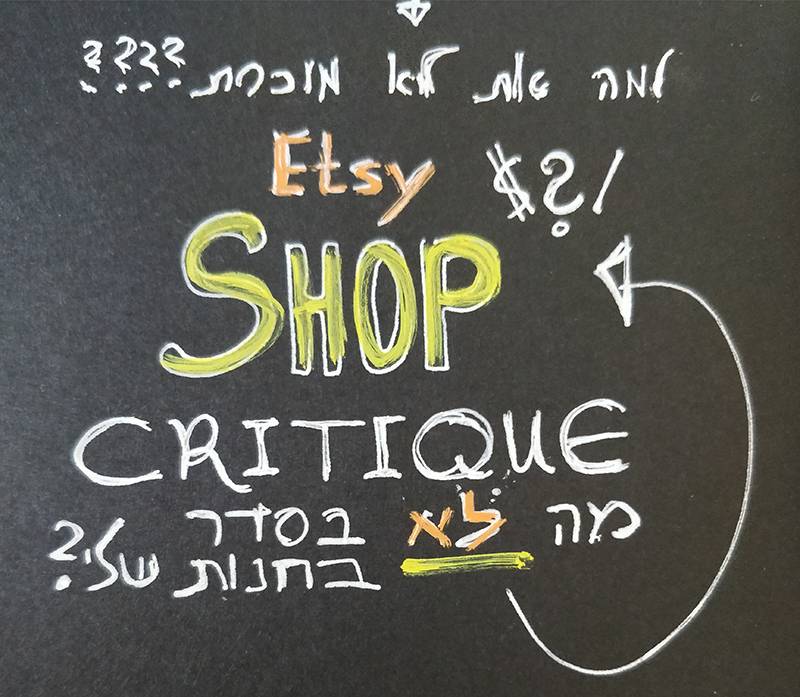 למה את לא מוכרת ????
Etsy $?!
SHOP
CRITIQUE
מה לא בסדר
בחנות שלי?